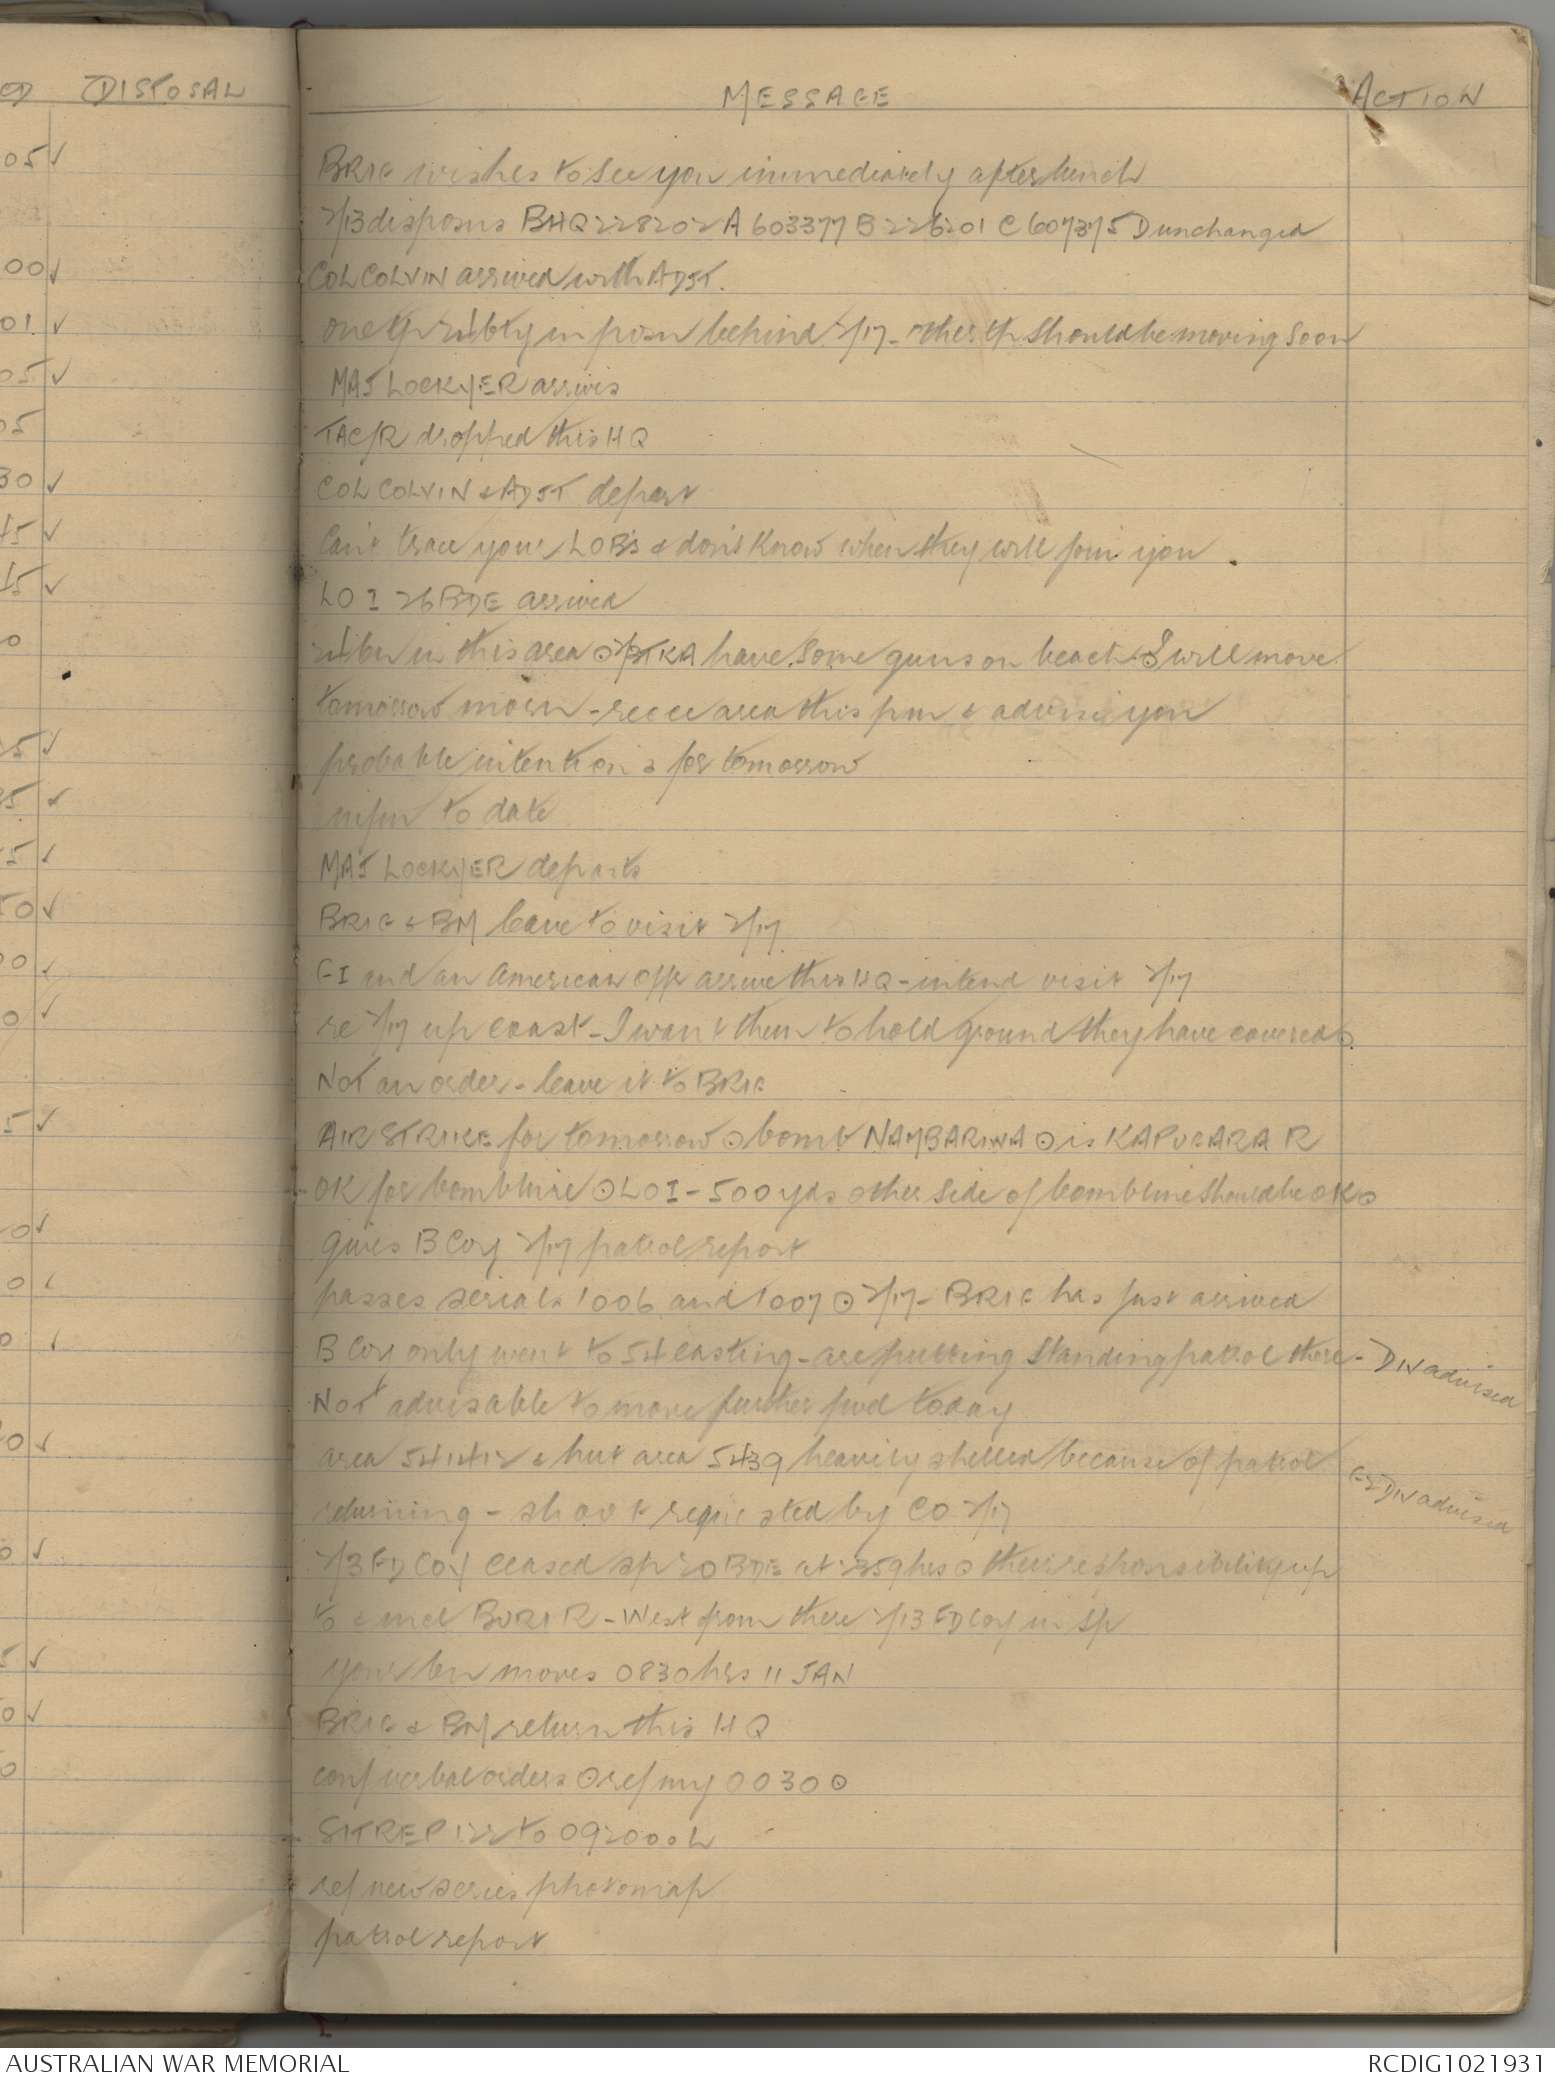 DISPOSAL
MESSAGE ACTION
05 ✓
BRIG wishes to see you immediately after lunch
2/13 disposns BHQ 228202 A 603377 B 226201 C 607375 D unchanged
00 ✓
COL COLVIN arrived with ADJT.
01. ✓
one tp bty in posn behind 2/17 - other tp should be moving soon
05 ✓
MAJ LOCKYER arrives
05
TAC/R dropped this HQ
30 ✓
COL COLVIN & ADJT depart
45 ✓
Can't trace your LOB's & don't know when they will join you.
45 ✓
LO I 26 BDE arrived
0
24 bn in this area ⊙ have some guns on beach ⊙ I will move
tomorrow morn - recce area this pm & advise you
5 ✓
probable intentions for tomorrow
5 ✓
infm to date
5 ✓
MAJ LOCKYER departs
50 ✓
BRIG & BM leave to visit 2/17
00 ✓
GI and an American offr arrive this HQ - intend visit 2/17
0 ✓
re 2/17 up coast - I want them to hold ground they have covered ⊙
NOT an order - leave it to BRIG
5 ✓
AIR STRIKE for tomorrow ⊙ bomb NAMBARIWA ⊙ is KAPUGARA R
OK for bombline ⊙ LOI - 500 yds other side of bombline should be OK ⊙
0 ✓
gives B Coy 2/17 patrol report
0 ✓
passes serials 1006 and 1007 ⊙ 2/17 - BRIG has just arrived
0 ✓
B Coy only went to 54 easting - are putting standing patrol there - DIV advised
NOT advisable to move further fwd today
0 ✓
area 541412 & hut area 5439 heavily shelled because of patrol
returning - shoot requested by CO 2/17
G2 DIV advised
0 ✓
2/3 FD COY ceased sp 20 BDE at 2359 hrs ⊙ their responsibility up
to & incl BURI R - West from there 2/13 FD Coy in sp
5 ✓
your bn moves 0830 hrs 11 JAN
0 ✓
BRIG & BM return this HQ
0
conf verbal orders ⊙ ref my 0030 ⊙
SITREP 122 to 092000L
ref new series photomap
patrol report
AUSTRALIAN WAR MEMORIAL RCDIG1021931